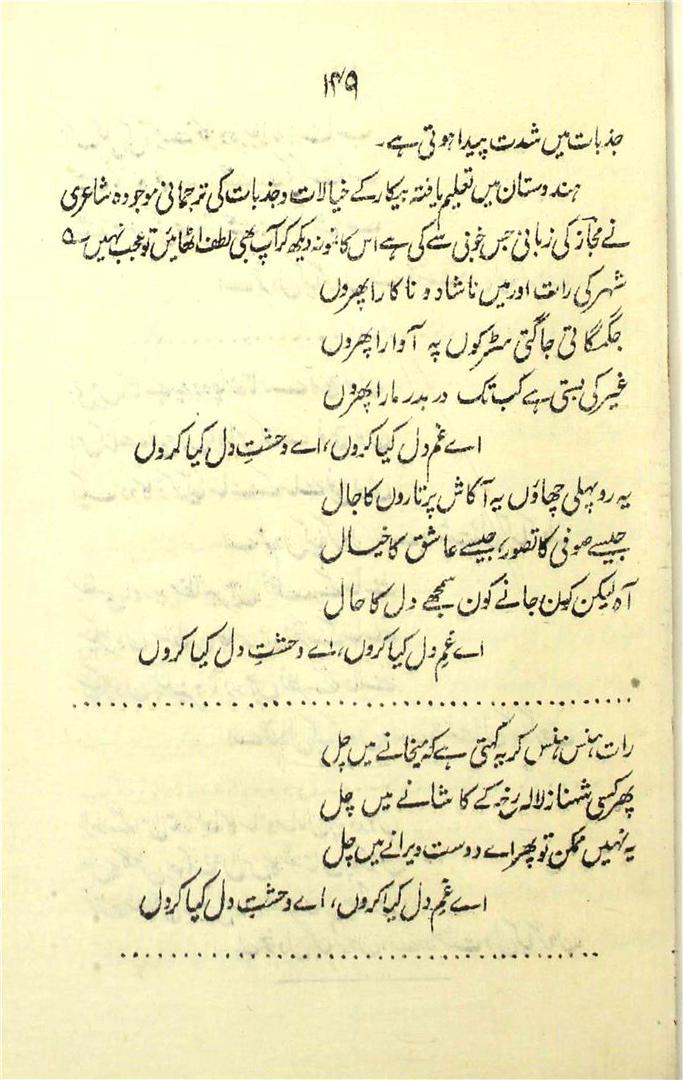 ۱۴۹
جذبات میں شدت پیدا ہوتی ہے۔
ہندوستان میں تعلیم یافتہ بیکار کے خیالات و جذبات کی ترجمانی موجودہ شاعری
نے مجاز کی زبانی جس خوبی سے کی ہے اس کا نمونہ دیکھ کر آپ بھی لطف اٹھائیں تو عجب نہیں ؎
شہر کی رات اور میں ناشاد و ناکارا پھروں
جگمگاتی جاگتی سڑکوں پہ آوارا پھروں
غیر کی بستی ہے کب تک در بدر مارا پھروں
اے غمِ دل کیا کروں، اے وحشتِ دل کیا کروں
یہ روپہلی چھاؤں یہ آکاش پر تاروں کا جال
جیسے صوفی کا تصور، جیسے عاشق کا خیال
آہ لیکن کون جانے کون سمجھے دل کا حال
اے غمِ دل کیا کروں، اے وحشتِ دل کیا کروں
رات ہنس ہنس کر یہ کہتی ہے کہ میخانے میں چل
پھر کسی شہناز لالہ رخ کے کاشانے میں چل
یہ نہیں ممکن تو پھر اے دوست ویرانے میں چل
اے غمِ دل کیا کروں، اے وحشتِ دل کیا کروں